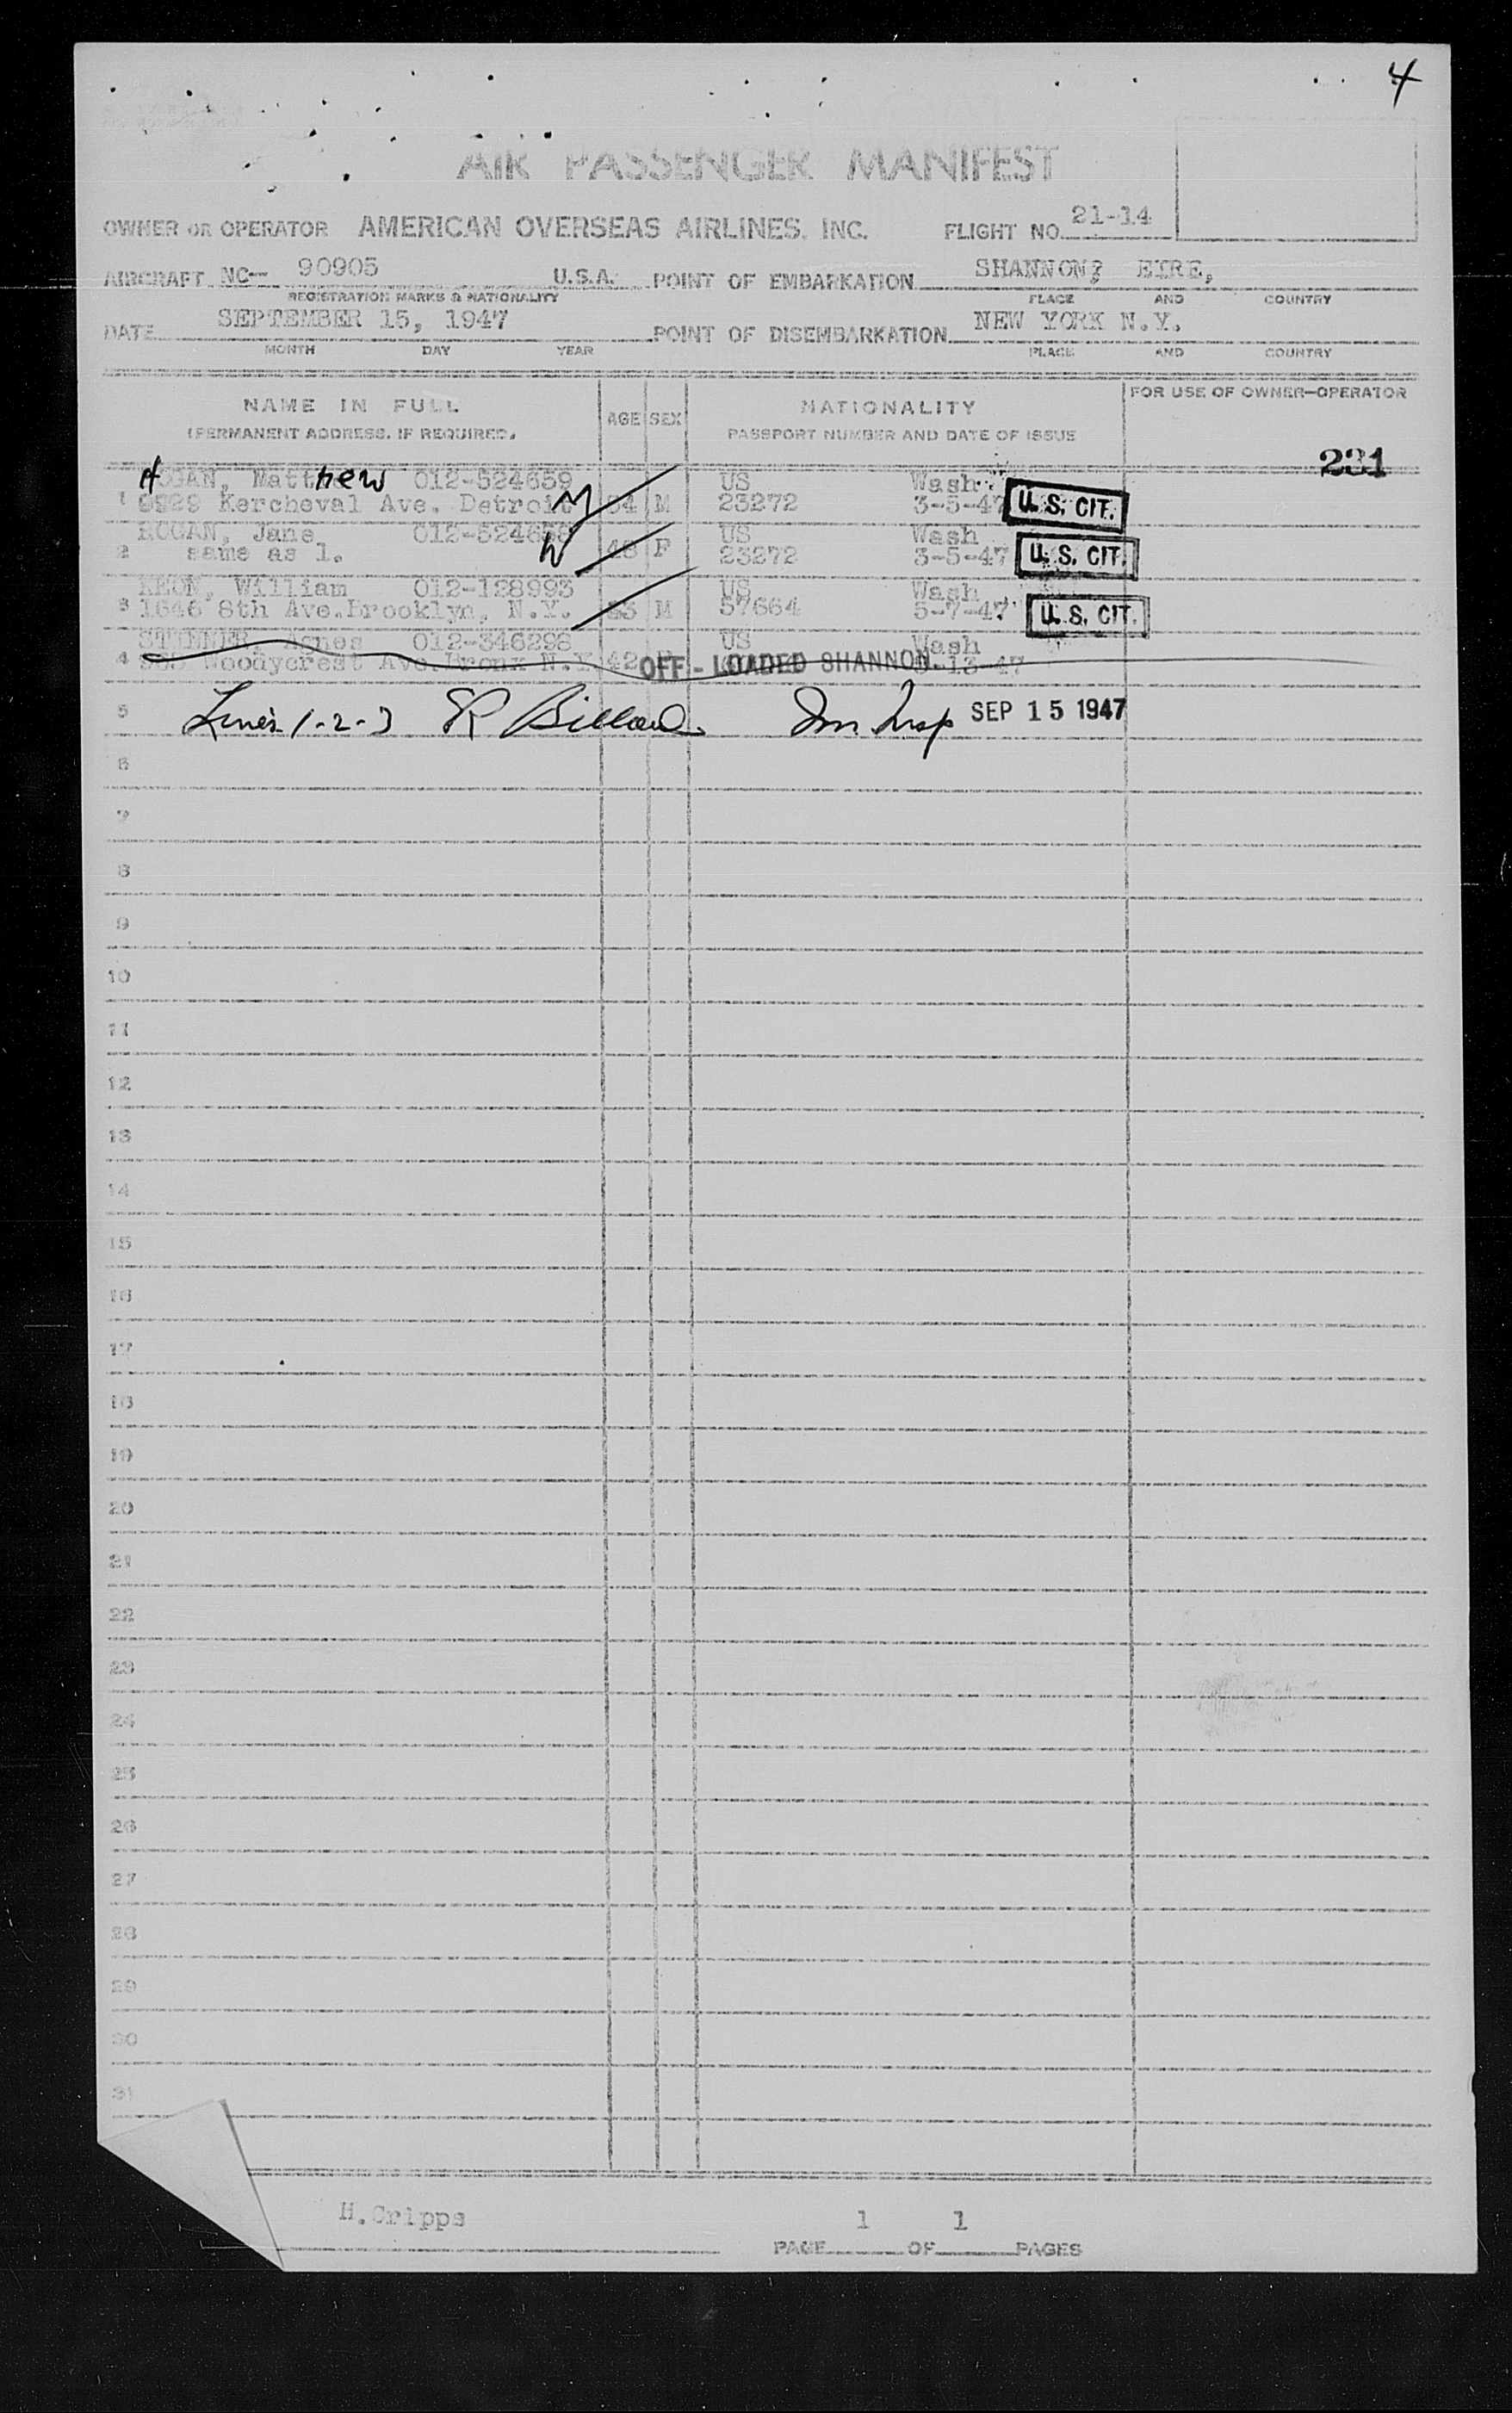 4
AIR PASSENGER MANIFEST
OWNER OR OPERATOR AMERICAN OVERSEAS AIRLINES, INC. FLIGHT NO. 21-14
AIRCRAFT NC- 90905 U.S.A. POINT OF EMBARKATION SHANNON? EIRE,
REGISTRATION MARKS & NATIONALITY PLACE AND COUNTRY
DATE SEPTEMBER 15, 1947 POINT OF DISEMBARKATION NEW YORK N.Y.
MONTH DAY YEAR PLACE AND COUNTRY
NAME IN FULL AGE SEX NATIONALITY FOR USE OF OWNER-OPERATOR
(PERMANENT ADDRESS, IF REQUIRED) PASSPORT NUMBER AND DATE OF ISSUE
231
HOGAN, Matthew 012-524659 US Wash
1 9929 Kercheval Ave. Detroit M 54 M 23272 3-5-47 U.S. CIT.
HOGAN, Jane 012-524658 US Wash
2 same as 1. W 48 F 23272 3-5-47 U.S. CIT.
KEON, William 012-128993 US Wash
3 1646 8th Ave. Brooklyn, N.Y. M 57664 5-7-47 U.S. CIT.
Agnes 012-346298 US Wash
4 Woodycrest Ave. Bronx N.Y. 42 OFF-LOADED SHANNON. -13-47
5 Lines 1-2-3 Imm Insp SEP 15 1947
6
7
8
9
10
11
12
13
14
15
16
17
18
19
20
21
22
23
24
25
26
27
28
29
30
31
H.Cripps
PAGE 1 OF 1 PAGES